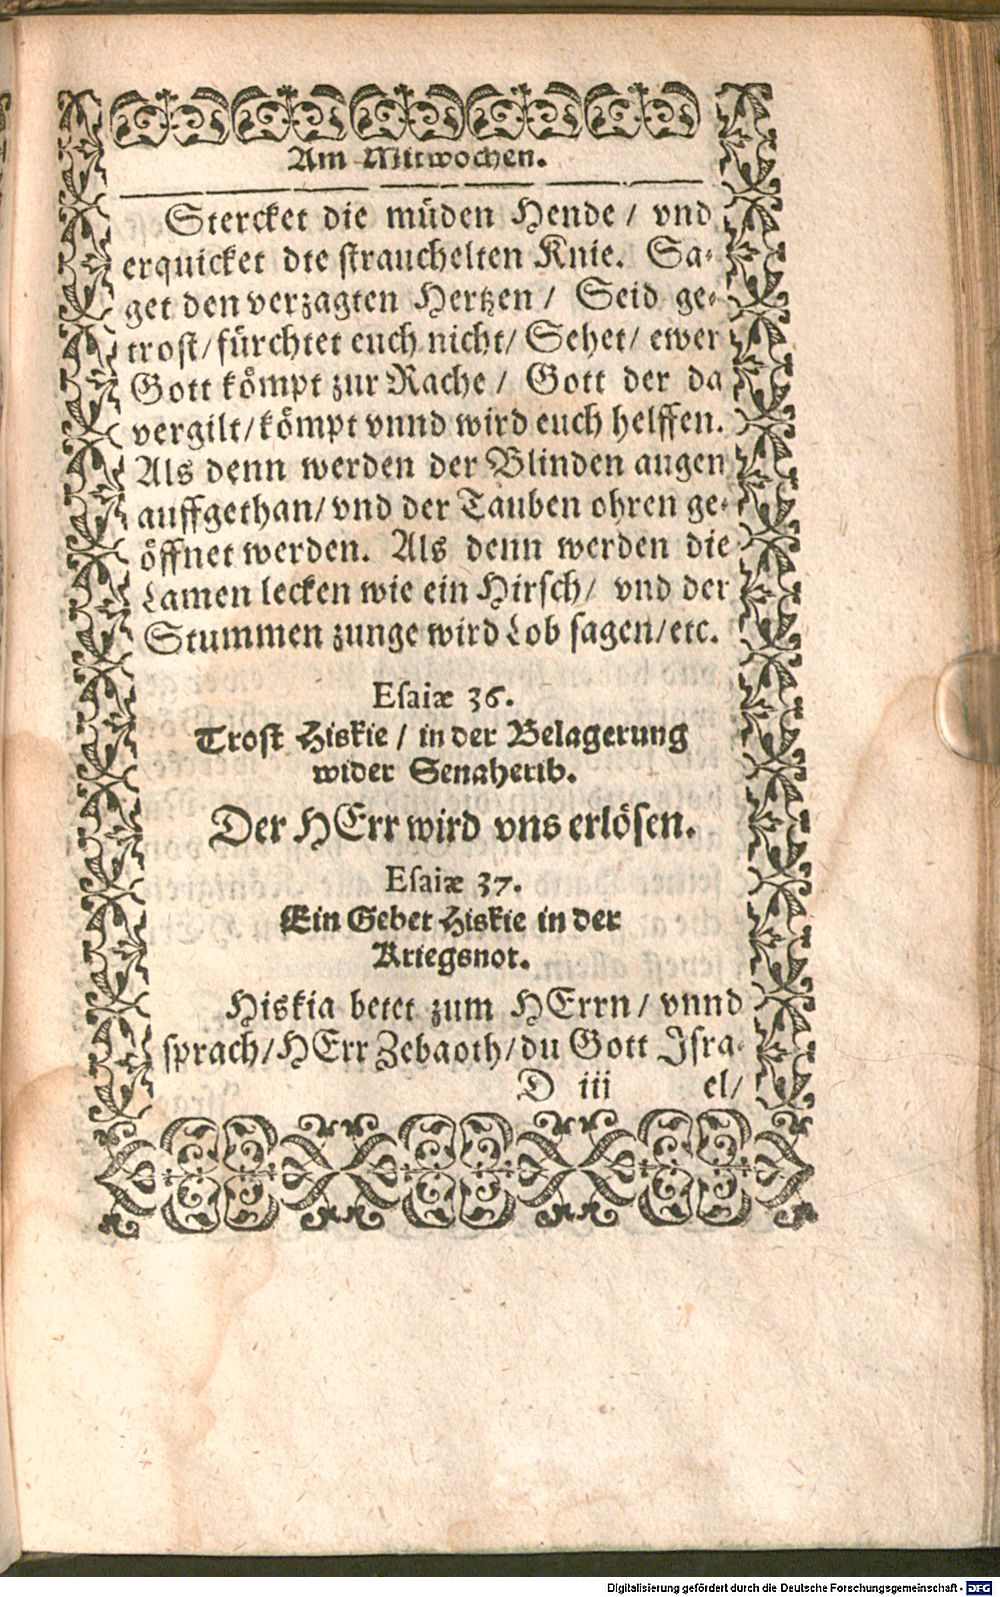 Am Mitwochen.
Stercket die müden Hende / vnd
erquicket die strauchelten Knie. Sa-
get den verzagten Hertzen / Seid ge-
trost / fürchtet euch nicht / Sehet / ewer
Gott kömpt zur Rache / Gott der da
vergilt / kömpt vnnd wird euch helffen.
Als denn werden der Blinden augen
auffgethan / vnd der Tauben ohren ge-
öffnet werden. Als denn werden die
Lamen lecken wie ein Hirsch / vnd der
Stummen zunge wird Lob sagen / etc.
Esaiæ 36.
Trost Hiskie / in der Belagerung
wider Senaherib.
Der HErr wird vns erlösen.
Esaiæ 37.
Ein Gebet Hiskie in der
Kriegsnot.
Hiskia betet zum HErrn / vnnd
sprach / HErr Zebaoth / du Gott Isra-
D iii el /
Digitalisierung gefördert durch die Deutsche Forschungsgemeinschaft - DFG